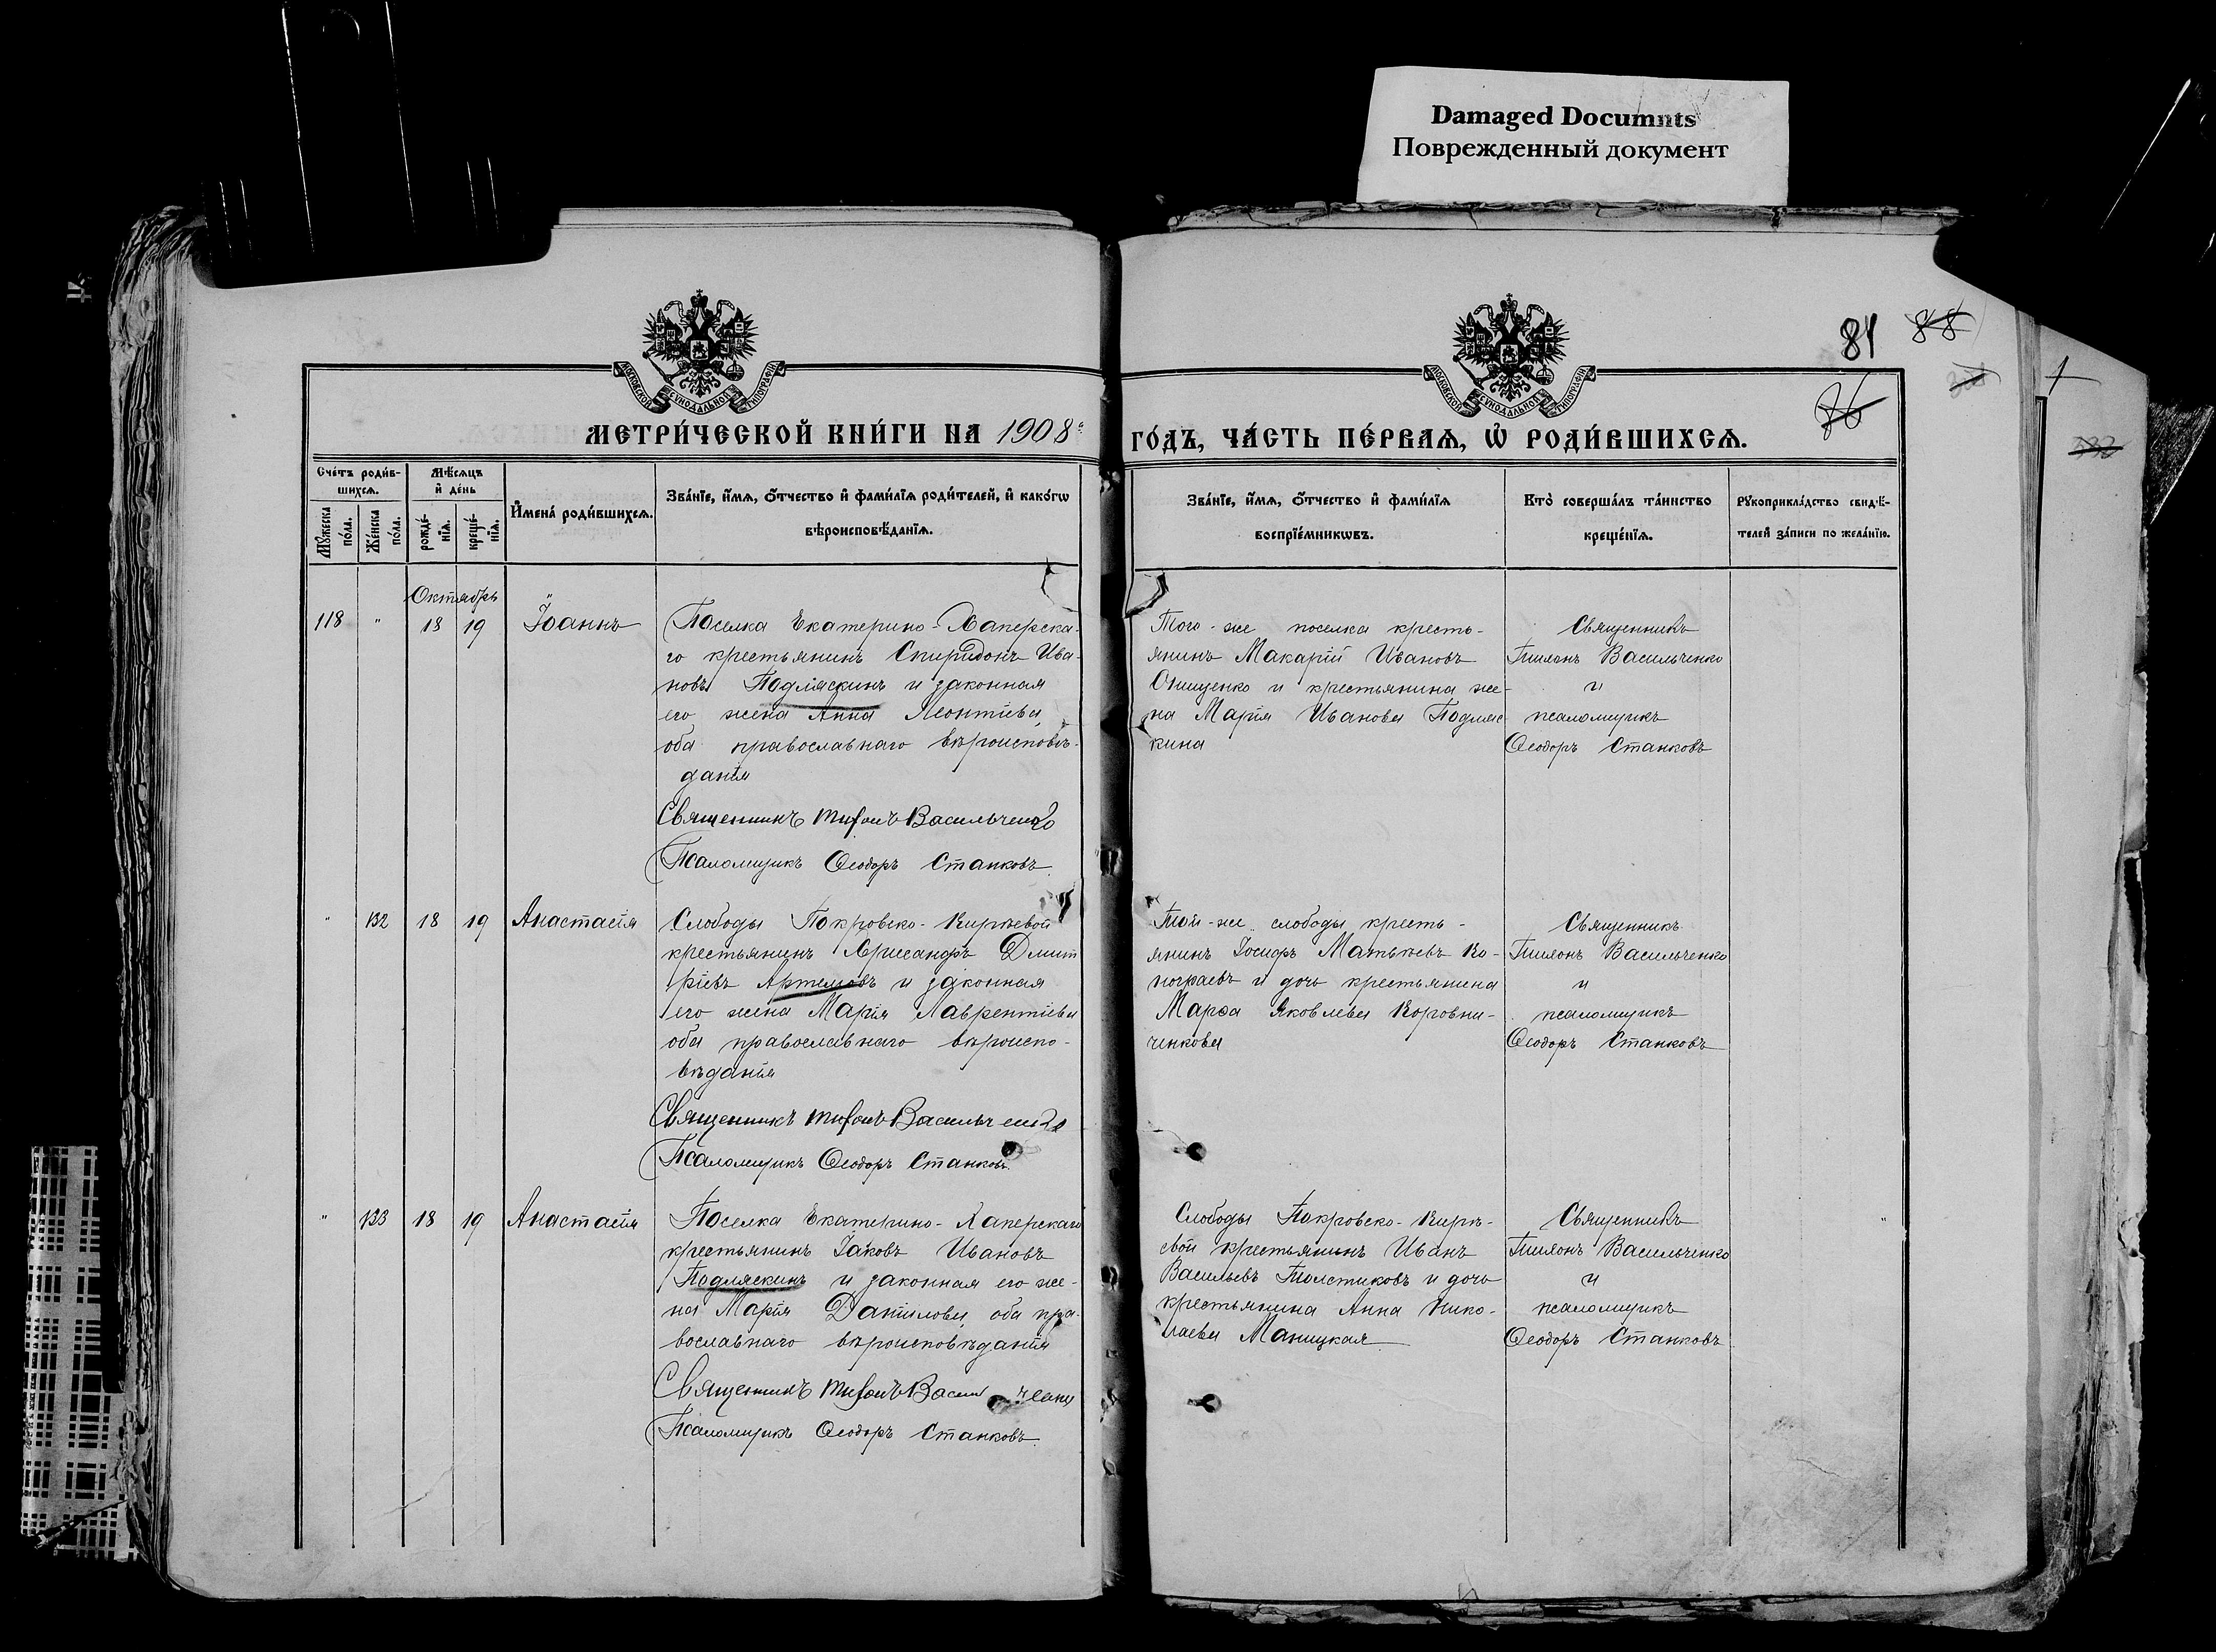 Damaged Documnts
Поврежденный документ
81
88
76
МОСКОВСКОЙ СѴНОДАЛЬНОЙ ТИПОГРАФІИ
МОСКОВСКОЙ СѴНОДАЛЬНОЙ ТИПОГРАФІИ
МЕТРИ́ЧЕСКОЙ КНИ́ГИ НА 1908
ГО́ДЪ, ЧА́СТЬ ПЕ́РВАѦ, Ѡ҆ РОДИ́ВШИХСѦ.
Сче́тъ роди́в-
шихсѧ.
Мꙋ́жеска по́ла.
Же́нска по́ла.
Мѣ́сѧцъ и҆ де́нь
рожде́-
нїѧ.
креще́-
нїѧ.
И҆мена̀ роди́вшихсѧ.
Зва́нїе, и҆́мѧ, ѻ҆́тчество и҆ фамилі́ѧ роди́телей, и҆ како́гѡ
вѣроисповѣ́данїѧ.
Зва́нїе, и҆́мѧ, ѻ҆́тчество и҆ фами́лїѧ
воспрїе́мникѡвъ.
Кто̀ соверша́лъ та́инство
креще́нїѧ.
Рꙋкоприкла́дство свидѣ́-
телей за́писи по жела́нїю.
Октябрь
118 " 18 19 Іоаннъ
Поселка Екатерино-Хаперска-
го крестьянинъ Спиридонъ Ива-
новъ Подляскинъ и законная
его жена Анна Леонтіева,
оба православнаго вѣроисповѣ-
данія
Священникъ Тифонъ Васильченко
Псаломщикъ Ѳеодоръ Станковъ
Того-же поселка кресть-
янинъ Макарій Ивановъ
Онищенко и крестьянина же-
на Марія Иванова Подляс
кина
Священникъ
Тихонъ Васильченко
и
псаломщикъ
Ѳеодоръ Станковъ
" 132 18 19 Анастасія
Слободы Покровско-Кирѣевой
крестьянинъ Хрисанфъ Дмит
ріевъ Артемовъ и законная
его жена Марія Лаврентіева
оба православнаго вѣроиспо-
вѣданія
Священникъ Тифонъ Васильченко
Псаломщикъ Ѳеодоръ Станковъ
Той-же слободы кресть-
янинъ Іосифъ Матвѣевъ Ко-
ногравъ и дочь крестьянина
Марѳа Яковлева Коровни-
ченкова
Священникъ
Тихонъ Васильченко
и
псаломщикъ
Ѳеодоръ Станковъ
" 133 18 19 Анастасія
Поселка Екатерино-Хаперскаго
крестьянинъ Іаковъ Ивановъ
Подляскинъ и законная его же-
на Марія Данилова, оба пра-
вославнаго вѣроисповѣданія
Священникъ Тифонъ Васильченко
Псаломщикъ Ѳеодоръ Станковъ
Слободы Покровско-Кирѣ-
евой крестьянинъ Иванъ
Васильевъ Толстиковъ и дочь
крестьянина Анна Нико-
лаева Маницкая
Священникъ
Тихонъ Васильченко
и
псаломщикъ
Ѳеодоръ Станковъ